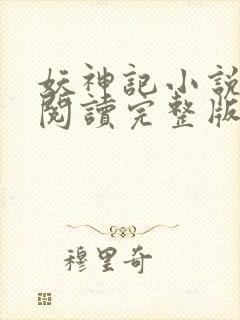 妖神記小說
閱讀完整版
穆里奇